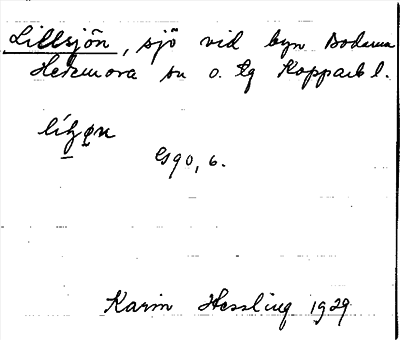 Lillsjön, sjö vid byn Bodarna
Hedemora sn o. tg Kopparb l.
Gs 90, 6.
Karin Hessling 1929